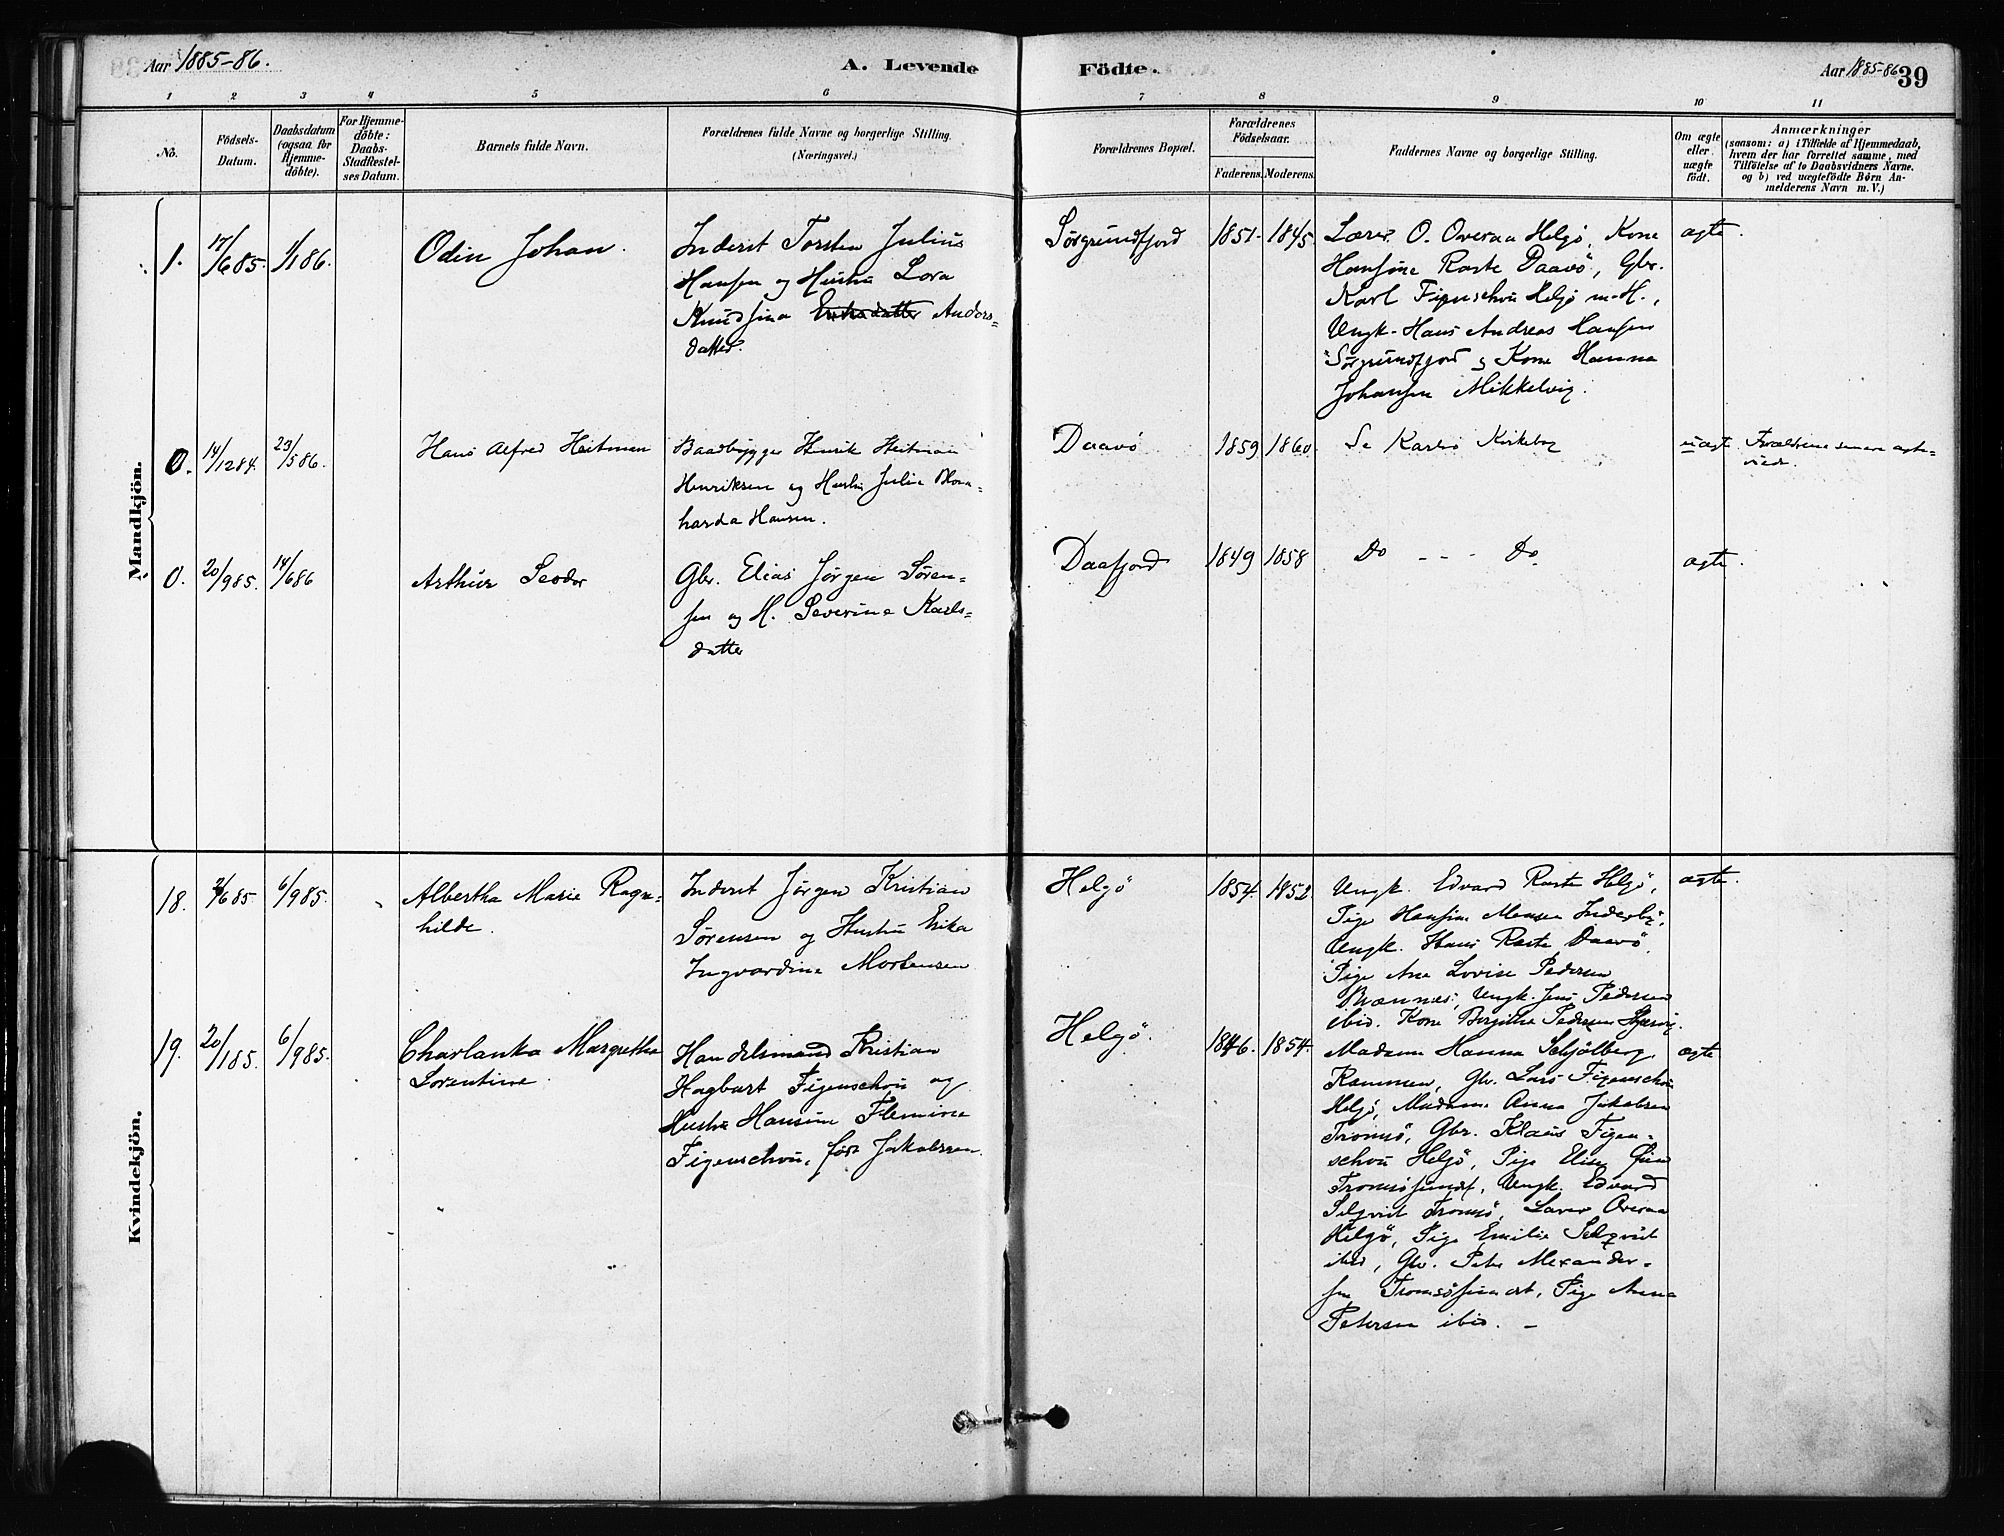 Aar 1885-86.
A. Levende Födte.
Aar 1885-86 39
1 2 3 4 5 6 7 8 9 10 11
No.
Födsels-
Datum.
Daabsdatum
(ogsaa for
Hjemme-
döbte).
For Hjemme-
döbte:
Daabs-
Stadfæstel-
ses Datum.
Barnets fulde Navn.
Forældrenes fulde Navne og borgerlige Stilling.
(Næringsvei.)
Forældrenes Bopæl.
Forældrenes
Födselsaar.
Faderens. Moderens.
Faddernes Navne og borgerlige Stilling.
Om ægte
eller
uægte
födt.
Anmærkninger
(saasom: a) i Tilfælde af Hjemmedaab,
hvem der har forrettet samme, med
Tilföielse af to Daabsvidners Navne.
og b) ved uægtefödte Börn An-
melderens Navn m. V.)
Mandkjön.
1. 17/6 85. 1/1 86.
Odin Johan.
Inderst Torsten Julius
Hansen og Hustru Lora
Knudsina Eriksdatter Anders-
datter.
Sørgrundfjord
1851. 1845
Lærer. O. Overaa Helgö, Kone
Hansine Raste Daavö, Gbr.
Karl Figenschou Helgö m. H.,
Ungk. Hans Andreas Hansen
Sörgrundfjord, Kone Hanna
Johansen Mikkelvig.
ægte.
0. 14/12 84. 23/5 86.
Hans Alfred Heitman
Baadbygger Henrik Heitman
Henriksen og Hustru Julie
harda Hansen.
Daavö
1859 1860
Se Karlsö Kirkebog
uægte
Forældrene senere ægte-
viede.
0. 20/9 85. 14/6 86
Arthur Seodor
Gbr. Elias Jørgen Søren-
sen og H. Severine Karls-
datter
Daafjord
1849 1858
Do - - - Do
ægte.
Kvindekjön.
18. /6 85 6/9 85.
Albertha Marie Ragn-
hilde.
Inderst Jørgen Kristian
Sørensen og Hustru Erika
Ingvardine Mortensen
Helgö
1854. 1852.
Ungk. Edvard Raste Helgö,
Pige Hansine Monsen Inderby,
Ungk. Hans Raste Daavö,
Pige Ane Lovise Pedersen
, Ungk. Jens Pedersen
ibid. Kone Birgithe Pedersen
ægte.
19. 20/1 85. 6/9 85.
Charlanka Margretha
Lorentine.
Handelsmand Kristian
Hagbart Figenschou og
Hustru Hansine Flemine
Figenschou, født Jakobsen.
Helgö.
1846. 1854.
Madame Hanna Schjölberg
, Gbr. Lars Figenschou
Helgö, Madame Anna Jakobsen
Tromsö, Gbr. Klaus Figen-
schou Helgö, Pige Elise
Tromsösund, Ungk. Edvard
Selqvist Tromsö, Lærer Overaa
Helgö, Pige Emilie Selqvist
ibid, Gbr. Peter Alexander-
sen Tromsösundet, Pige Anna
Petersen ibid. -
ægte